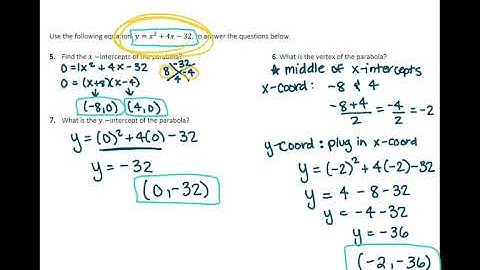 Use the following equation, y = x² + 4x − 32, to answer the questions below.
5. Find the x −intercepts of the parabola?
0 = 1x² + 4x - 32
0 = (x+8)(x-4)
(-8,0) (4,0)
-32
8 -4
4
7. What is the y −intercept of the parabola?
y = (0)² + 4(0) - 32
y = -32
(0,-32)
6. What is the vertex of the parabola?
★ middle of x-intercepts
x-coord: -8 & 4
-8+4/2 = -4/2 = -2
y-coord: plug in x-coord
y = (-2)² + 4(-2) - 32
y = 4 - 8 - 32
y = -4 - 32
y = -36
(-2, -36)